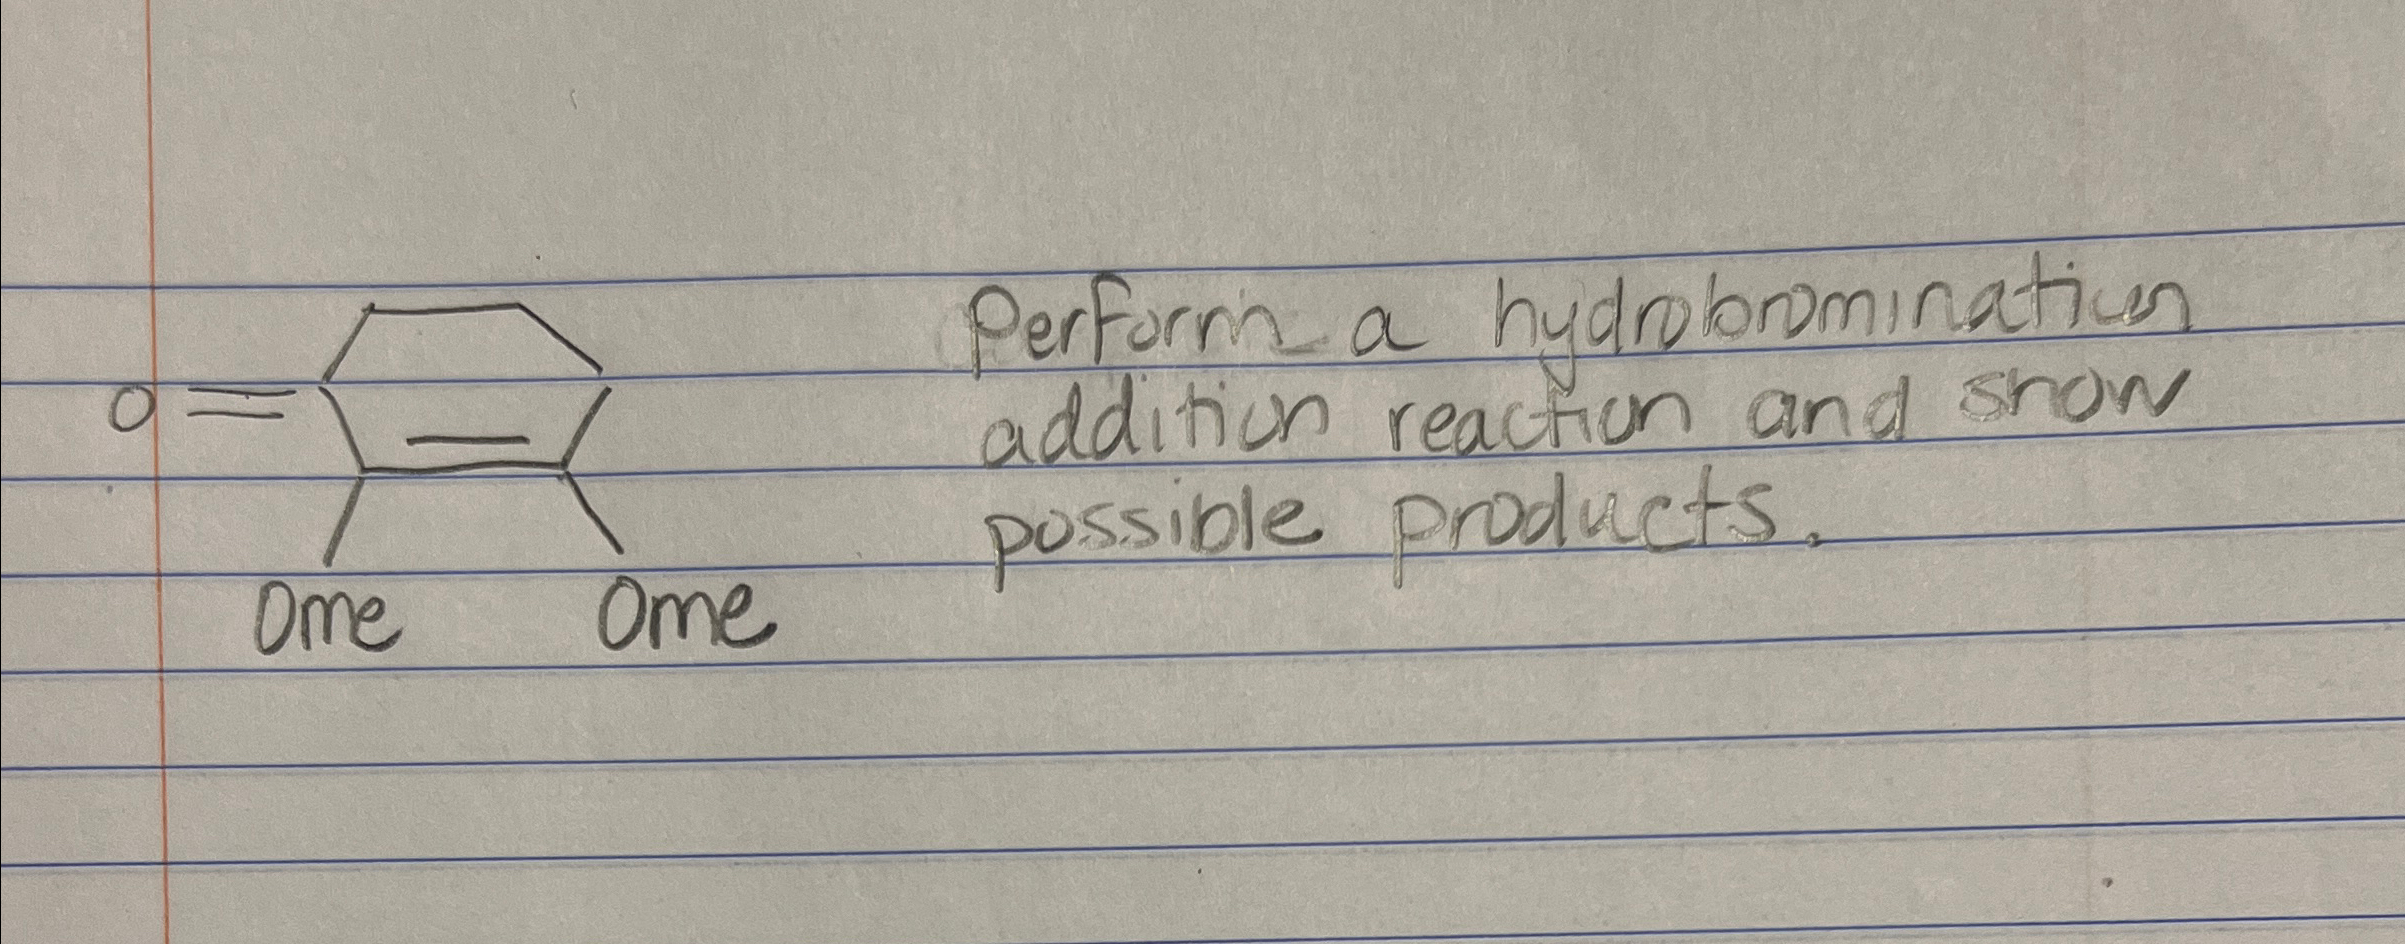 Perform a hydrobromination
O
addition reaction and show
possible products.
Ome Ome